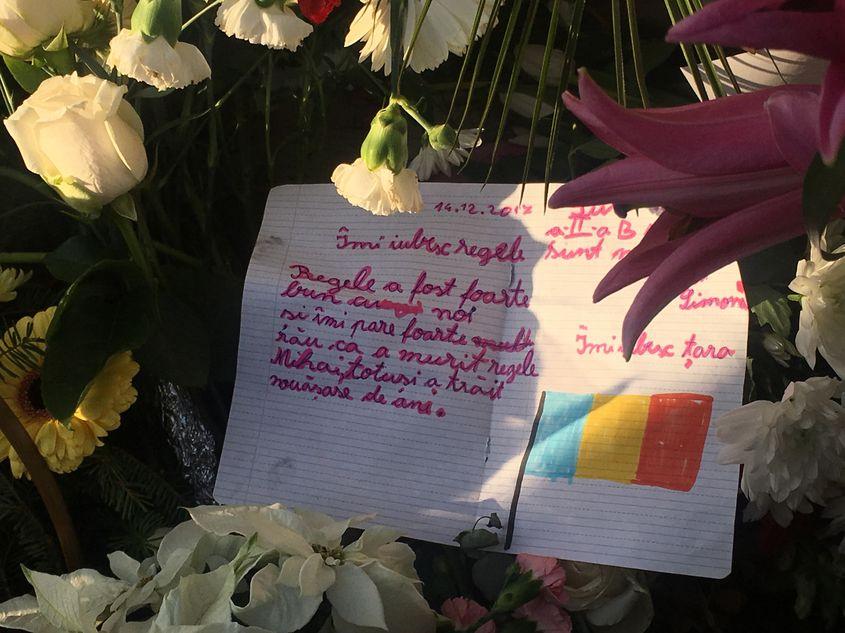 14.12.2017
Îmi iubesc regele
Regele a fost foarte
bun noi
si îmi pare foarte
rău ca a murit regele
Mihai, totusi a trăit
nouășase de ani.
a-II-a B
sunt
Simon
Îmi iubesc țara